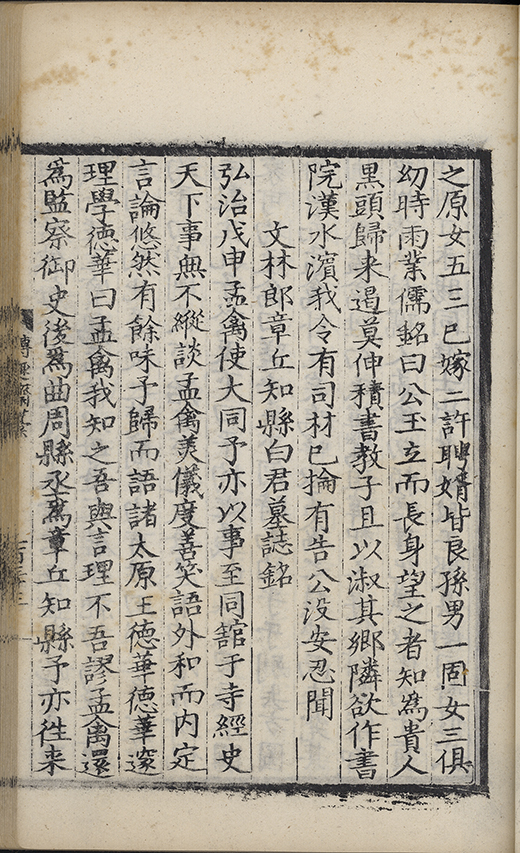 之原女五三已嫁二許聘婿皆良孫男一周女三俱
幼時雨業儒銘曰公玉立而長身望之者知為貴人
黑頭歸来遏莫伸積書教子且以淑其鄉隣欲作書
院漢水濵我令有司材已掄有告公没安忍聞
文林郎章丘知縣白君墓誌銘
弘治戊申孟禽使大同予亦以事至同舘于寺經史
天下事無不縱談孟禽美儀度善笑語外和而内定
言論悠然有餘味予歸而語諸太原王德華德華邃
理學德華曰孟禽我知之吾與言理不吾謬孟禽還
為監察御史後為曲周縣丞為章丘知縣予亦徃来